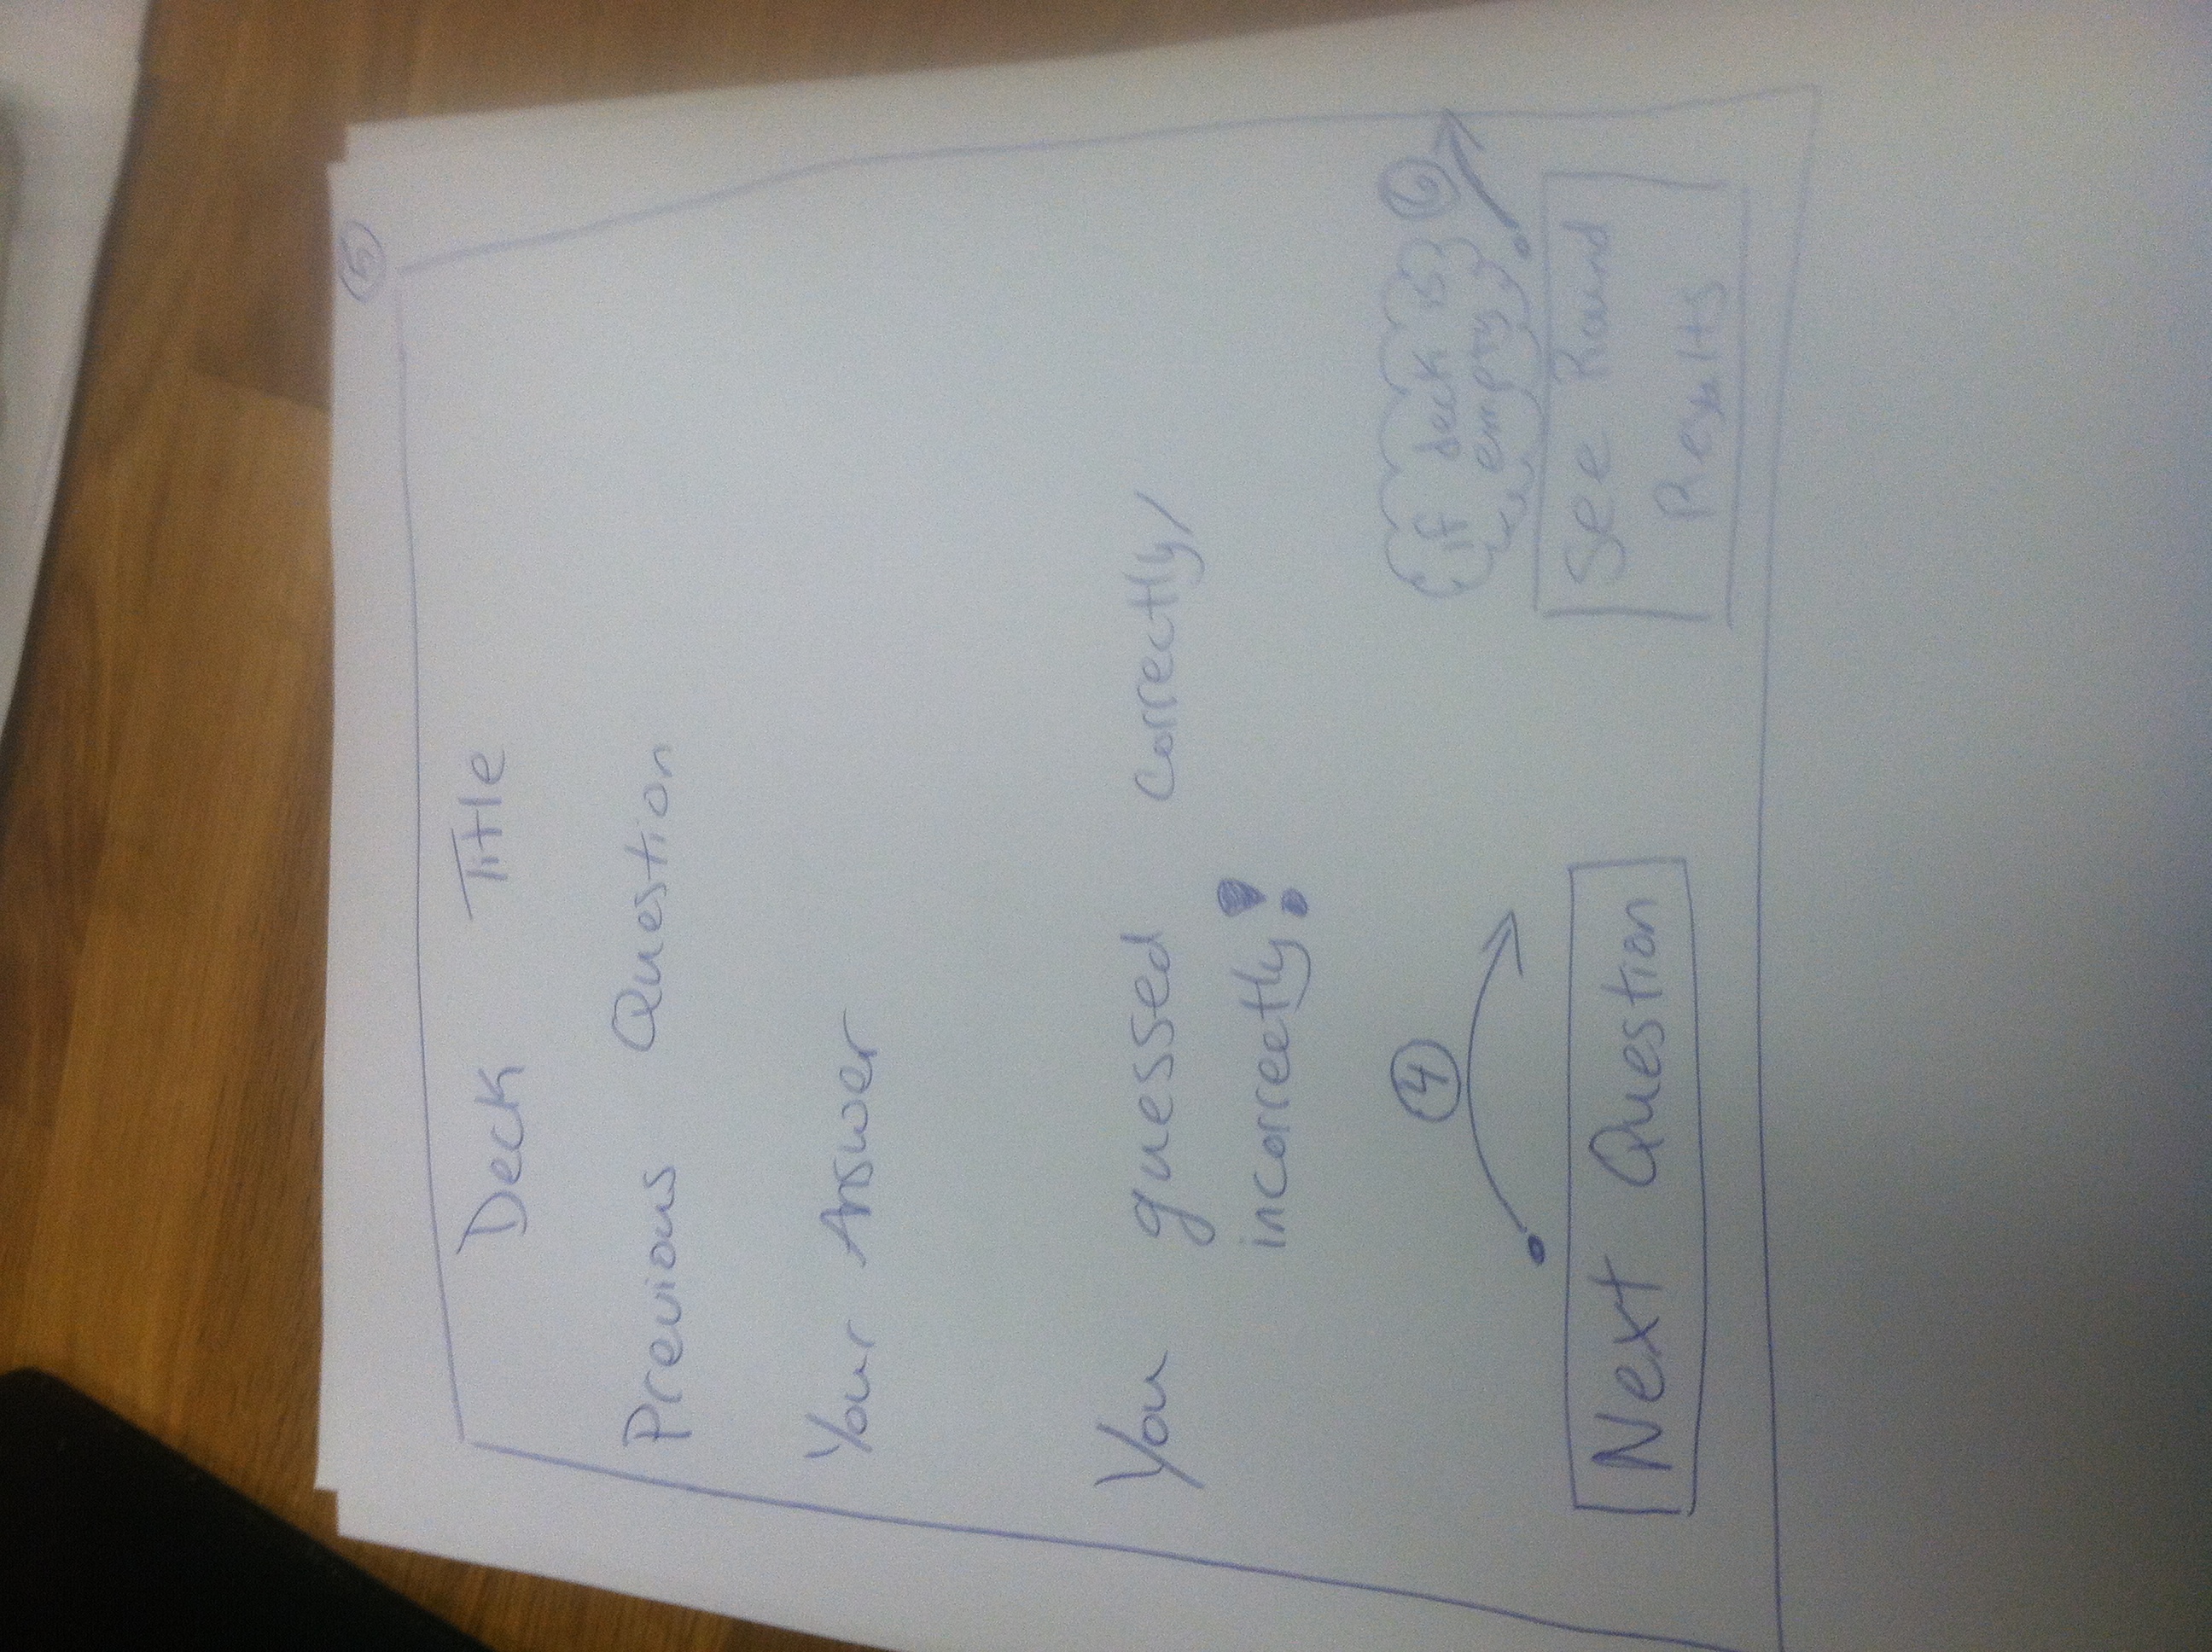 5
Deck Title
Previous Question
Your Answer
You guessed correctly/
incorrectly!
4
Next Question
if deck is
empty
6
See Round
Results